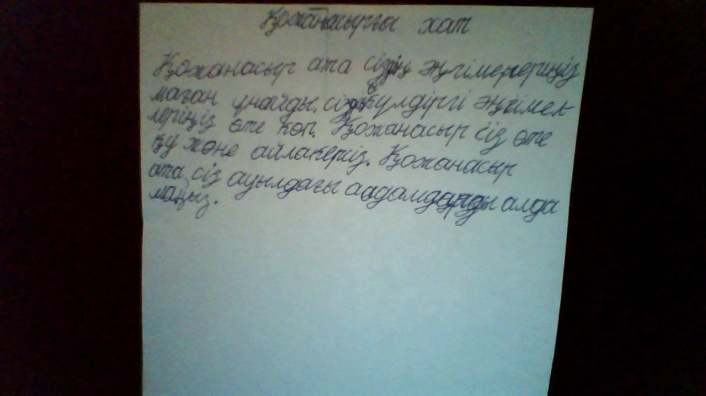 Қожанасырға хат
Қожанасыр ата сіздің әңгімерериңіз
маған ұнайды. сіздің күлдіргі әңгімел-
леріңіз өте көп. Қожанасыр сіз өте
қу және айлакерсіз. Қожанасыр
ата, сіз ауылдағы аадамдарды алда
маңыз.